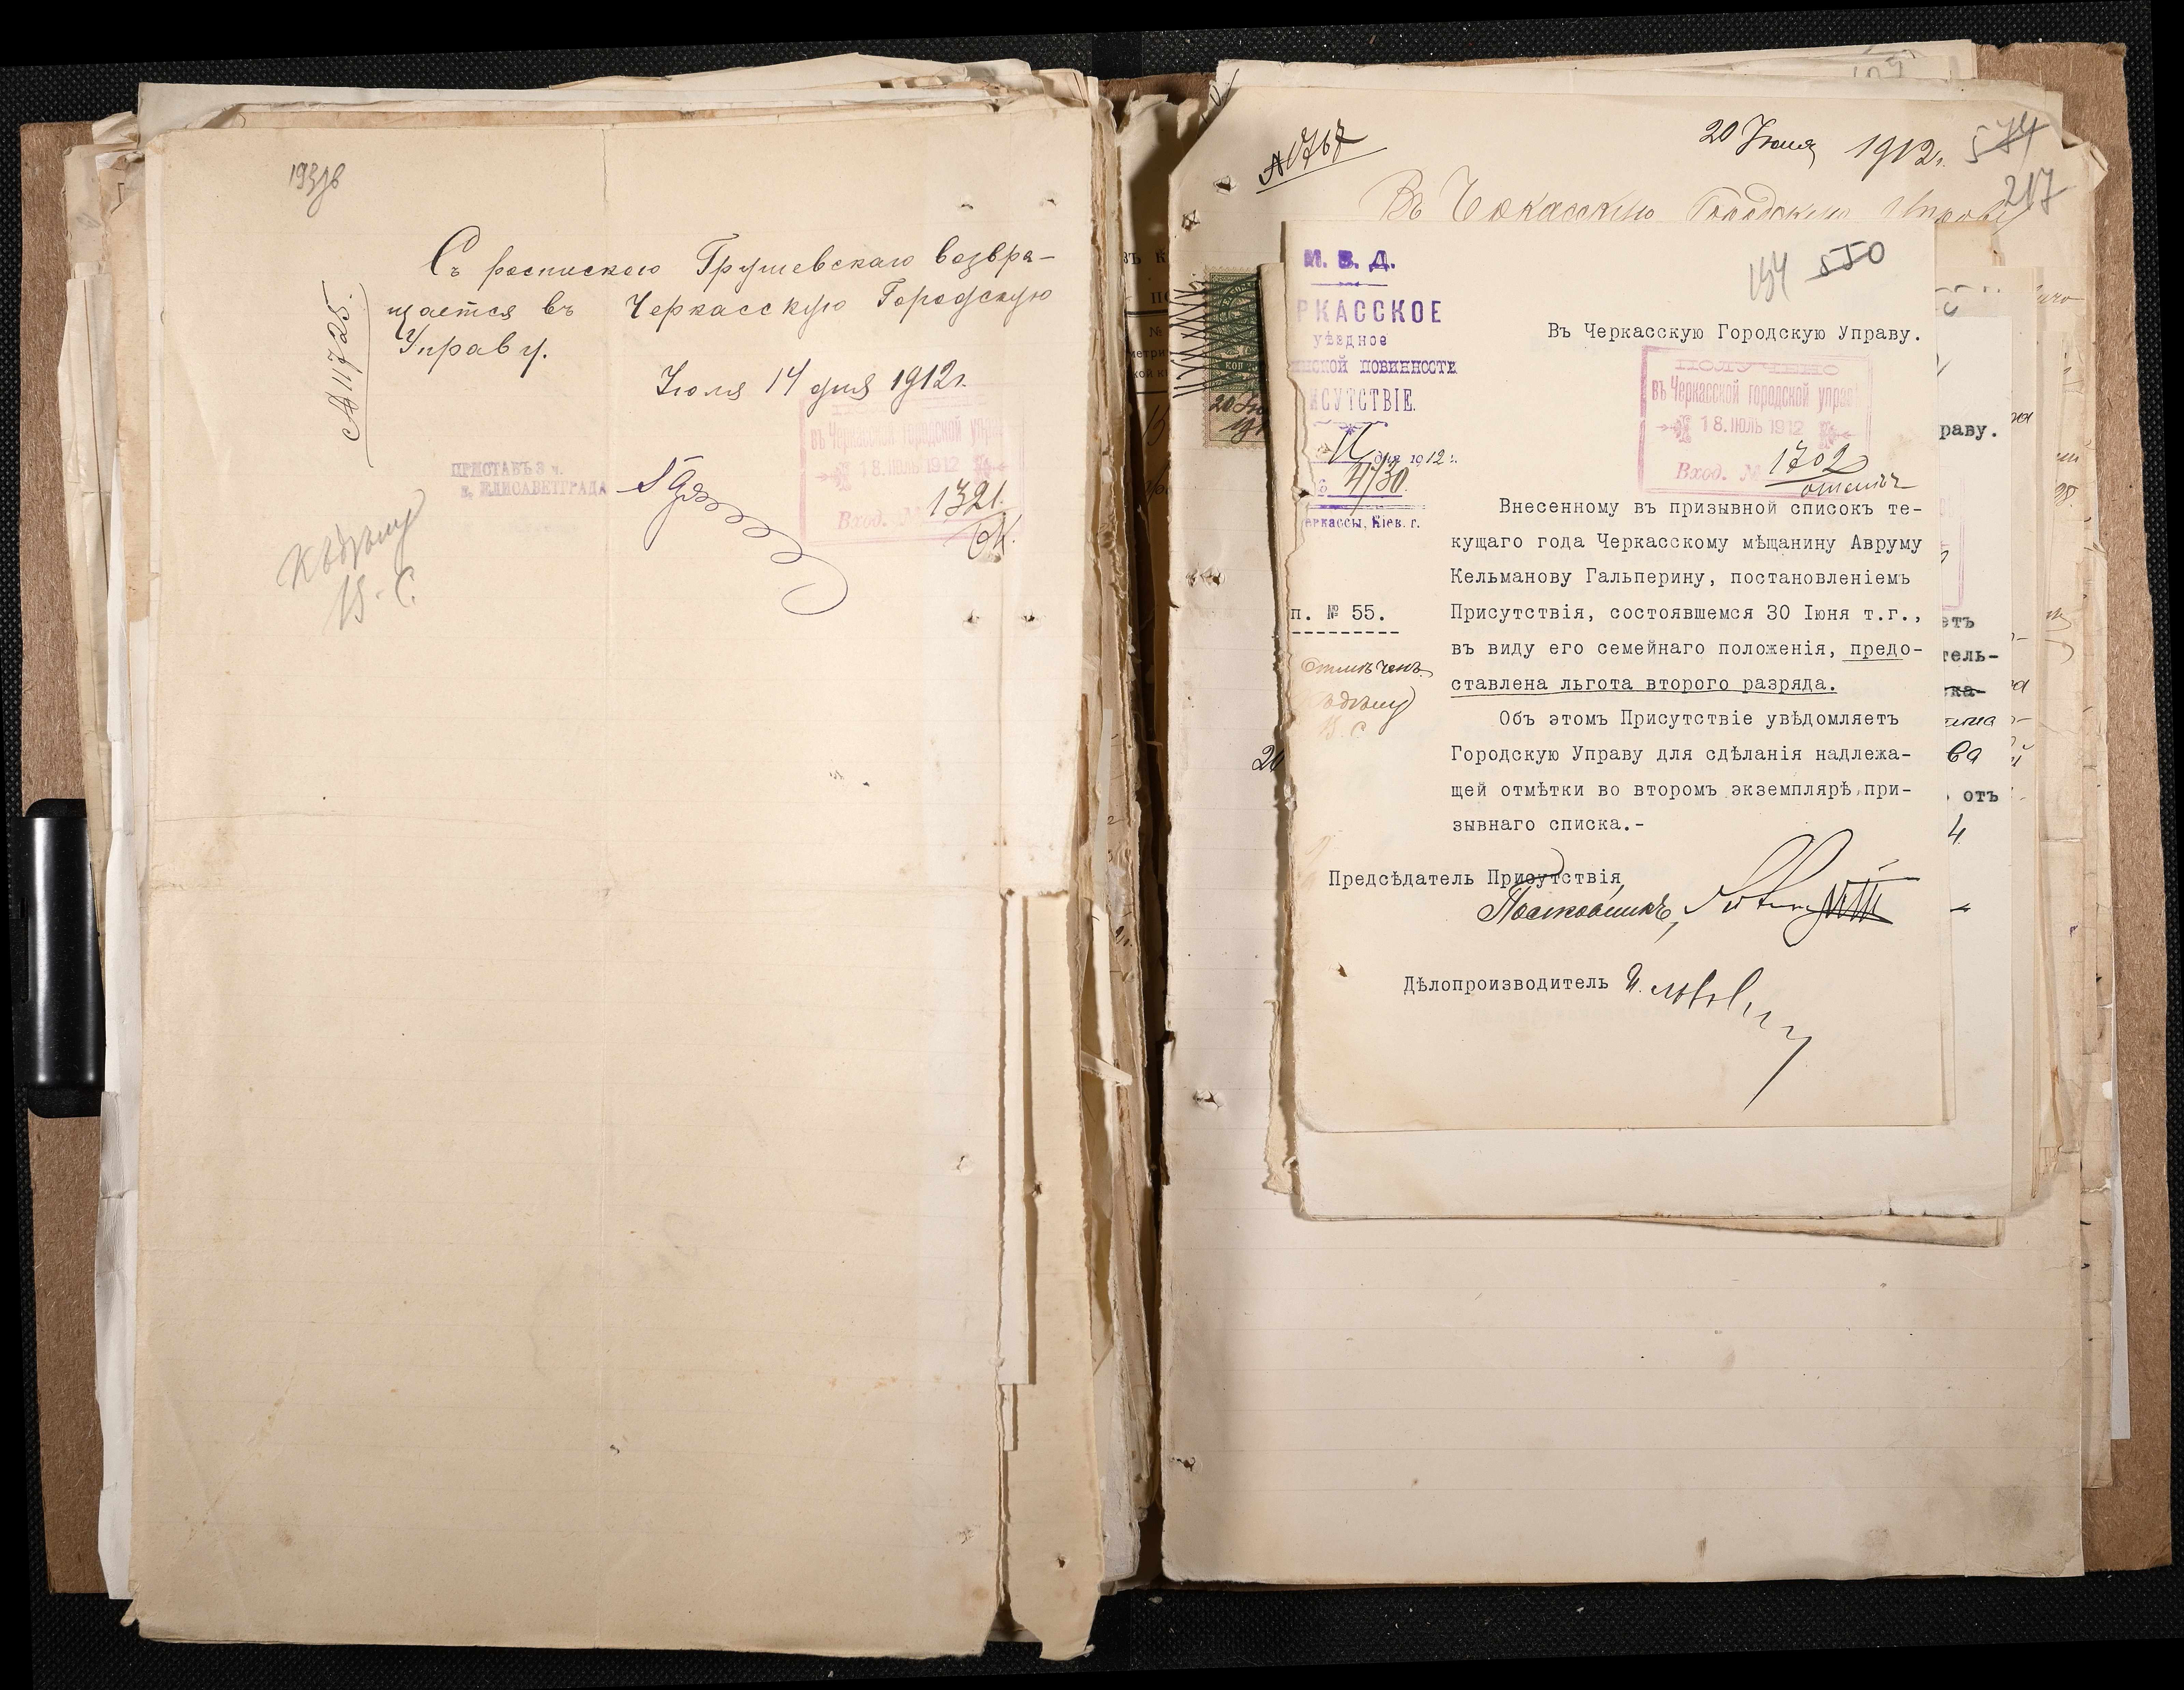 Съ роспискою Грушевскаго возвра-
щается въ Черкасскую Городскую
Управу.
Іюля 14 дня 1912 г.
№ 11725.
ПРИСТАВЪ 3 ч.
г. ЕЛИСАВЕТГРАДА
въ Черкасской городской управ
18. ІЮЛЬ 1912
Вход. №
1321.
Къ дѣлу
В. С.
№ 1767
20 Іюля 1912 г.
574
217
Въ Черкасскую Городскую Управу
20
194 550
М. В. Д.
РКАССКОЕ
уѣздное
инской повинности
ИСУТСТВІЕ.
11 дня 1912 г.
4730.
еркассы, Кіев. г.
Въ Черкасскую Городскую Управу.
ПОЛУЧЕНО
въ Черкасской городской управ
18. ІЮЛЬ 1912
Вход. № 1702
Внесенному въ призывной списокъ те-
кущаго года Черкасскому мѣщанину Авруму
Кельманову Гальперину, постановленіемъ
п. № 55.
Присутствія, состоявшемся 30 Іюня т.г.,
въ виду его семейнаго положенія, предо-
ставлена льгота второго разряда.
Отмѣченъ
Къ дѣлу
В. С.
Объ этомъ Присутствіе увѣдомляетъ
Городскую Управу для сдѣланія надлежа-
щей отмѣтки во второмъ экземплярѣ при-
зывнаго списка.-
Предсѣдатель Присутствія
Полковникъ,
Дѣлопроизводитель
раву.
етъ
тель-
ка-
отъ
4